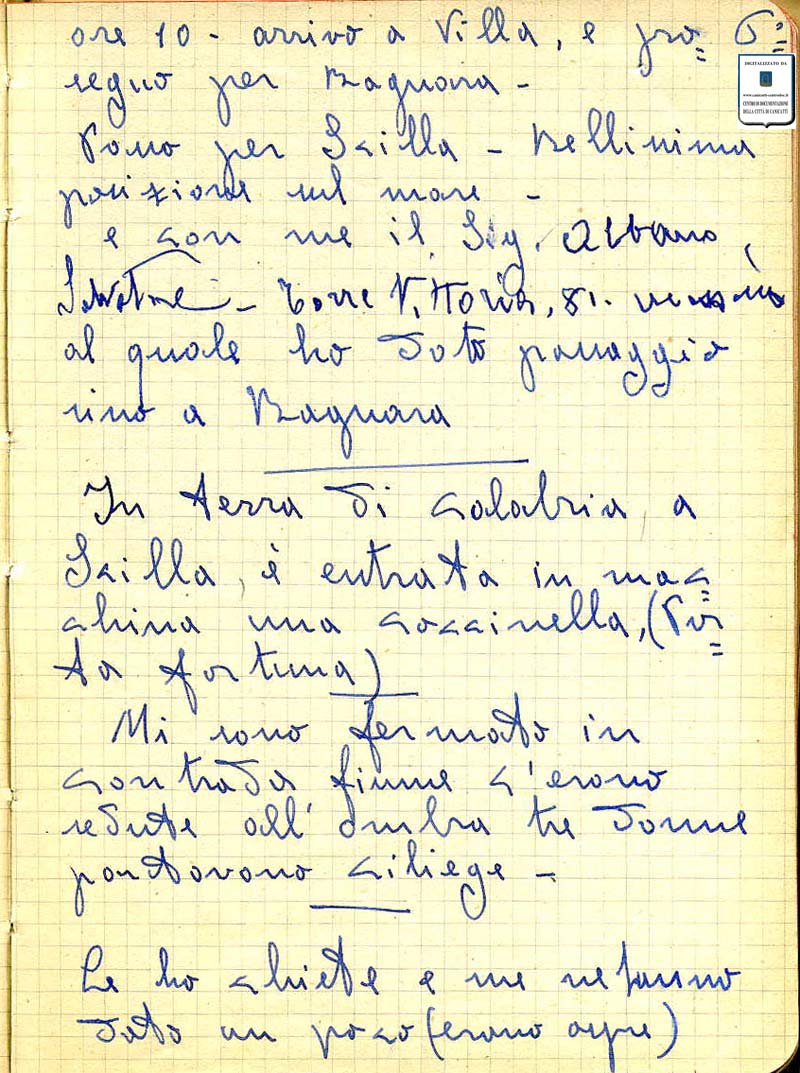 ore 10 - arrivo a Villa, e pro=
seguo per Bagnara -
Passo per Scilla - Bellissima
posizione sul mare -
e con me il Sig. Albano,
Torre Vittoria, 81.
al quale ho dato passaggio
sino a Bagnara
In terra di Calabria a
Scilla, è entrata in mac=
china una coccinella, (Por=
ta fortuna)
Mi sono fermato in
contrada fiume c'erano
sedute all'ombra tre donne
portavano ciliege -
Le ho chieste e me ne hanno
dato un poco (erano aspre)
DIGITALIZZATO DA
www.canicatti-centrodoc.it
CENTRO DI DOCUMENTAZIONE
DELLA CITTÀ DI CANICATTÌ